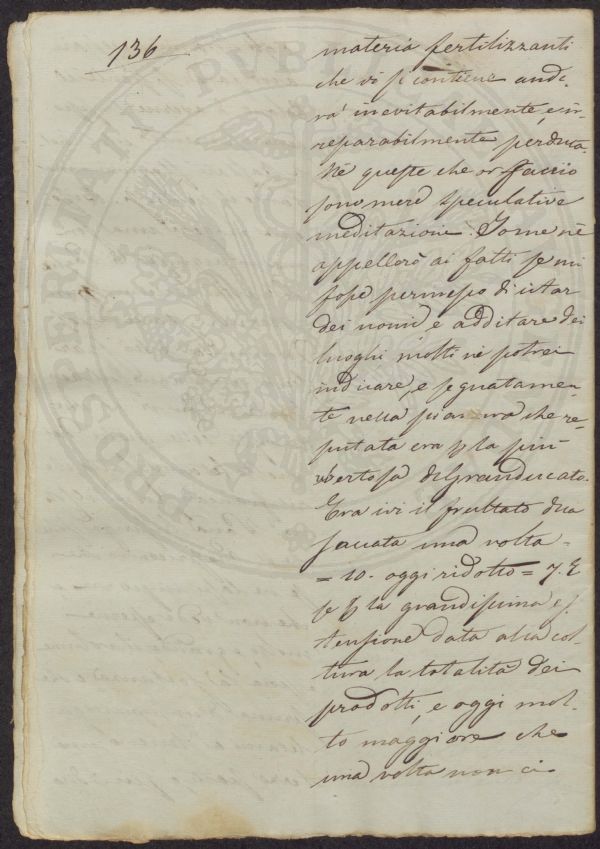 136
materia fertilizzanti
che vi si contiene andr
rà inevitabilmente, e ir-
reparabilmente perduta.
Nè queste che or faccio
sono mere speculative
meditazioni. Io me nè
appellerò ai fatti se mi
fosse permesso di citar
dei nomi, e additare dei
luoghi molti nè potrei
indicare, e segnatamen-
te nella pianura che re-
putata era p la più
ubertosa del Granducato.
Era ivi il fruttato d'una
saccata una volta
= 10. oggi ridotto = 7. E
se p la grandissima es-
tensione data alla col-
tura la totalità dei
prodotti, e oggi mol-
to maggiore che
una volta non ci